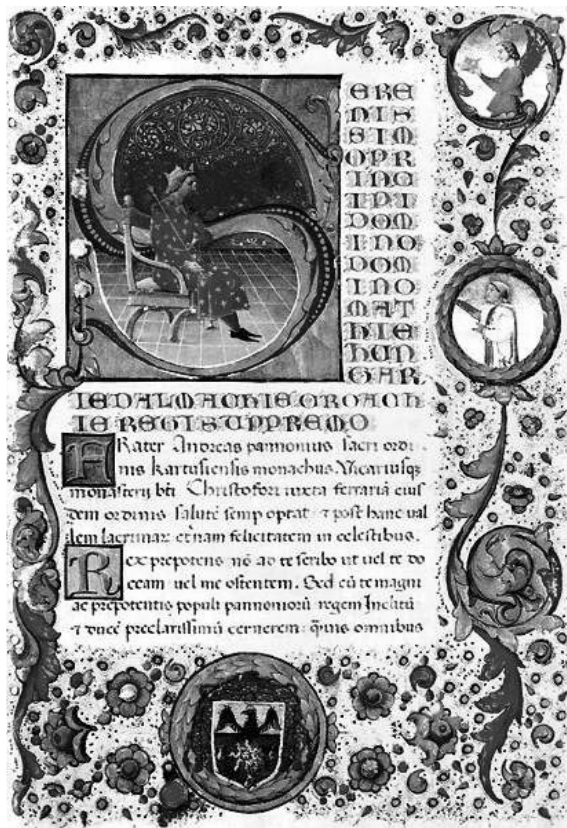 SERE
NIS
SIM
OPR
INC
IPI
DOM
INO
DOM
INO
MAT
HIE
HUN
GAR
IE DALMACHIE CROACH
IE REGI SUPPREMO
FRater Andreas pannonius sacri ordi
nis kartusiensis monachus Vicariusq;
monasterij bti Christofori iuxta ferrariā eius
dem ordinis salutē semp optat ⁊ post hanc ual
lem lacrimar etnam felicitatem in celestibus.
Rex prepotens nō ad te scribo ut uel te do
ceam uel me ostentem. Sed cū te magni
ac prepotentis populi pannoniorū regem Inclitū
⁊ ducē preclarissimū cernerem: q̄uis omnibus